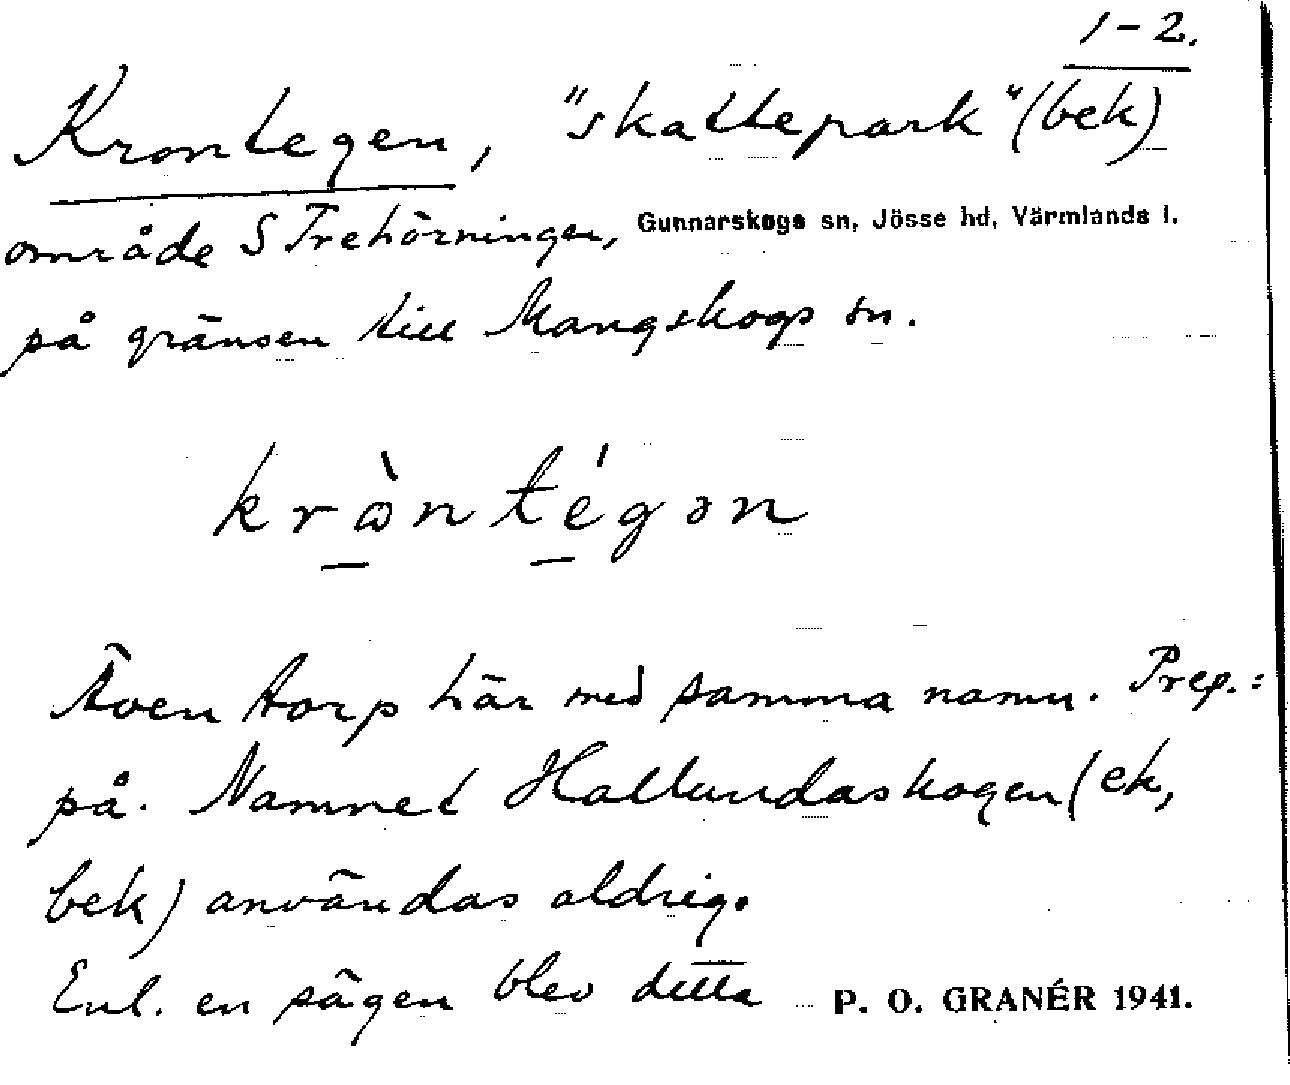 1-2.
Krontegen, "skattepark" (bek)
område S Trehörningen, Gunnarskogs sn, Jösse hd, Värmlands l.
på gränsen till Mangskogs sn.
kròntégən
Även torp här med samma namn. Prep.:
på. Namnet Hallundaskogen (ek,
bek) användas aldrig.
Enl. en sägen blev detta P. O. GRANÉR 1941.